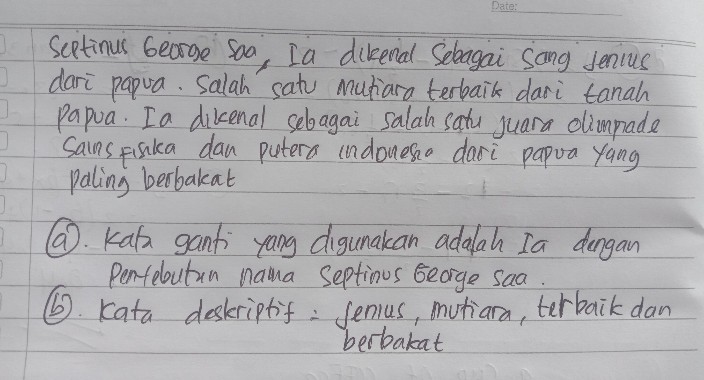 Date:
Septinus George Saa, Ia dikenal Sebagai Sang Jenius
dari papua. Salah satu Mutiara terbaik dari tanah
Papua. Ia dikenal sebagai salah satu juara olimpade
Sains Fisika dan putera indonesia dari papua Yang
paling berbakat
(a). Kata ganti yang digunakan adalah Ia dengan
Penyebutan nama Septinus George saa.
(b). Kata deskriptif : Jenius, mutiara, terbaik dan
berbakat